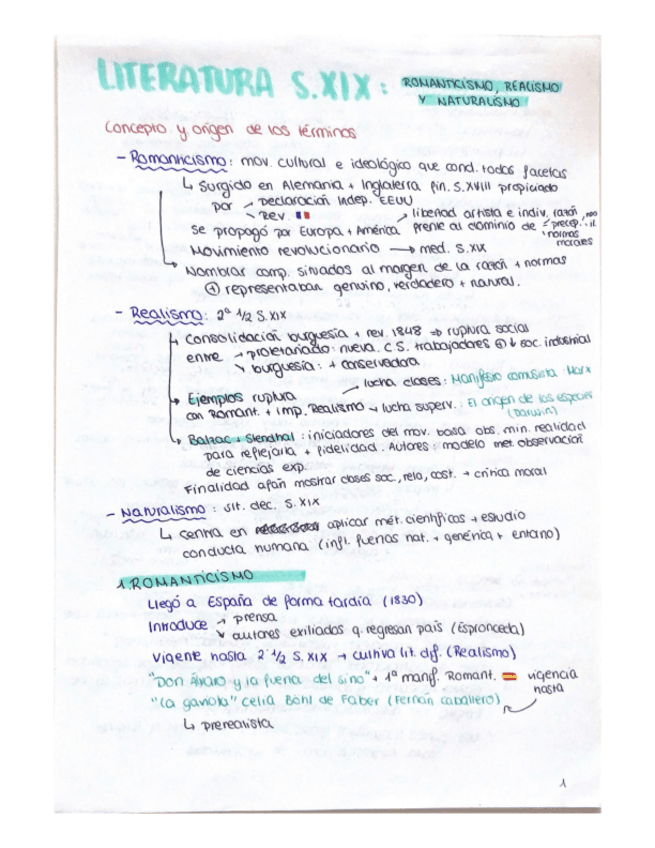 LITERATURA S.XIX: ROMANTICISMO, REALISMO
Y NATURALISMO
Concepto y origen de los términos
- Romanticismo: mov. cultural e ideológico que cond. todas facetas
↳ Surgido en Alemania + Inglaterra fin. S.XVIII propiciado
por → Declaración Indep. EEUU
↘ Rev. 🇫🇷
→ libertad artista e indiv. razón,
Se propagó por Europa + América frente al dominio de
precep.
normas
morales
Movimiento revolucionario → med. S.XIX
Nombrar comp. situados al margen de la razón + normas
⊕ representaban genuino, verdadero + natural.
- Realismo: 2ª 1/2 S.XIX
↳ Consolidación burguesía + rev. 1848 ⇒ ruptura social
entre → proletariado: nueva C.S. trabajadores ⊕ ↓ soc. industrial
↘ burguesía: + conservadora
↳ Ejemplos ruptura → lucha clases: Manifiesto comunista · Marx
con Romant. + imp. Realismo → lucha superv.: El origen de las especies
(Darwin)
↳ Balzac + Stendhal: iniciadores del mov. basa obs. min. realidad
para reflejarla + fidelidad. Autores: modelo met. observación
de ciencias exp.
Finalidad afán mostrar clases soc., relo, cost. → crítica moral
- Naturalismo: últ. dec. S.XIX
↳ Centra en aplicar mét. científicos → estudio
conducta humana (infl. fuerzas nat. + genérica + entorno)
1. ROMANTICISMO
Llegó a España de forma tardía (1830)
Introduce → prensa
↘ autores exiliados q. regresan país (Espronceda)
Vigente hasta 2ª 1/2 S.XIX → cultiva lit. dif. (Realismo)
"Don Álvaro y la fuerza del sino" + 1ª manf. Romant. 🇪🇸 vigencia
hasta
"La gaviota" Celia Böhl de Faber (Fernán Caballero)
↳ prerealista
1